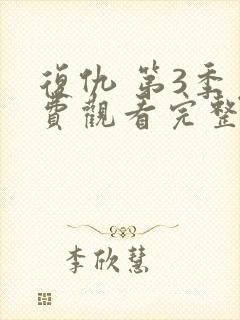 復仇 第3季
費觀看完整
李欣慧